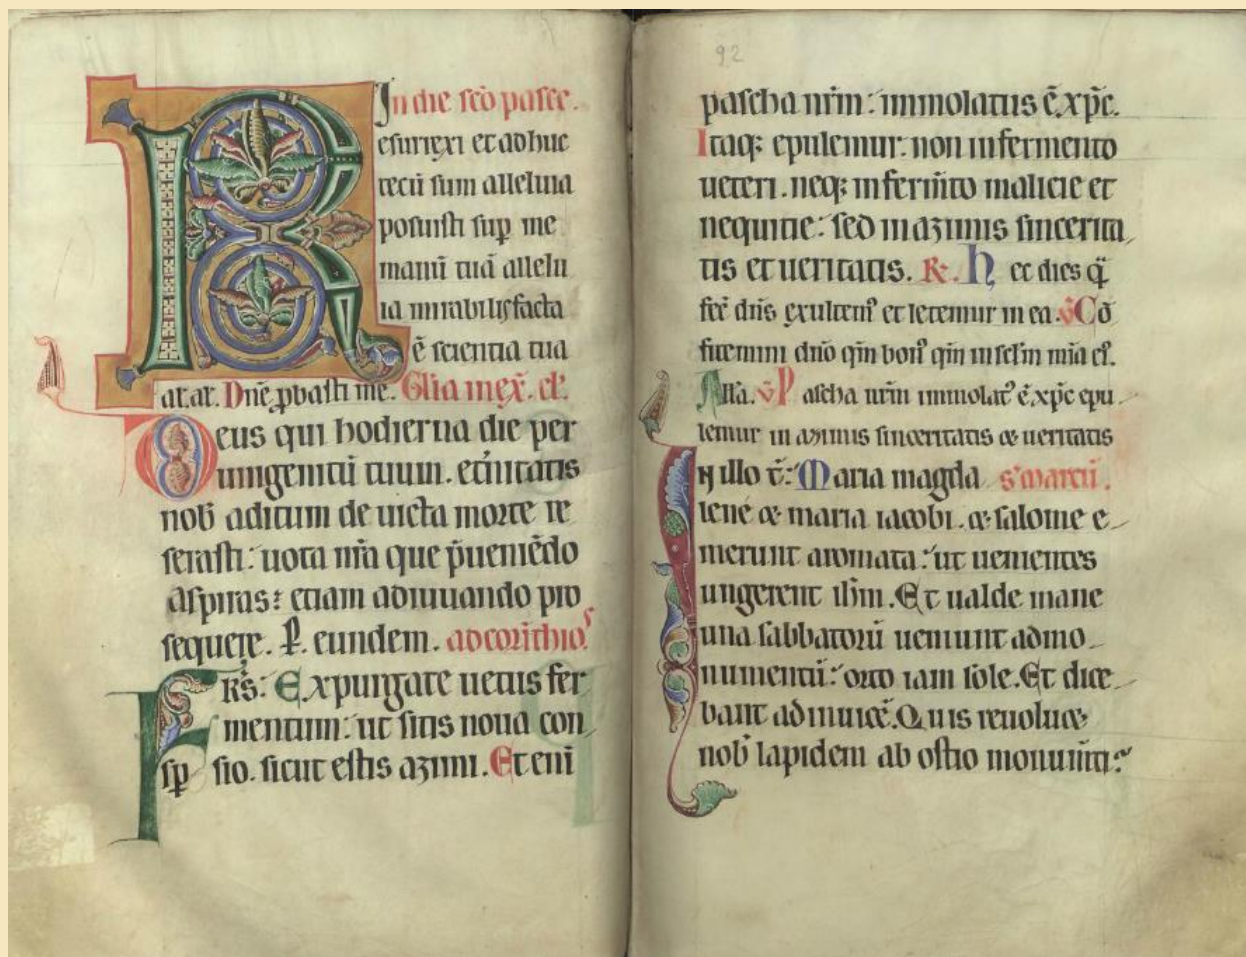 In die sc̄o pasce.
esurrexi et adhuc
tecū sum alleluia
posuisti sup̱ me
manū tuā allelu
ia mirabilis facta
ē scientia tua
at. at. Dn̄e ꝓbasti me. Gl̄ia in ex̄. el.
Deus qui hodierna die per
unigenitū tuum. et̄nitatis
nob̄ aditum de uicta morte re
serasti: uota nr̄a que p̄ueniēdo
aspiras: etiam adiuuando pro
sequere. P̱. eundem. ad corīthios
FRS̄: Expurgate uetus fer
mentum: ut sitis noua con
sp̱sio. sicut estis azimi. Et eni
92
pascha nr̄m: immolatus ē xp̄c.
Itaqꝫ epulemur: non in fermento
ueteri. neqꝫ in ferm̄to malicie et
nequitie: sed in azimis sincerita
tis et ueritatis. R. H ec dies q̄
fec̄ dn̄s exultemꝰ et letemur in ea. V Cō
fitemini dn̄o qm̄ bonꝰ qm̄ in sclm̄ mīa eꝰ.
All̄a. V Pascha nr̄m immolatꝰ ē xp̄c epu
lemur in azimis sinceritatis & ueritatis
IN illo t̄: Maria magda s. marcū.
lene & maria iacobi. & salome e
merunt aromata: ut uenientes
ungerent ih̄m. Et ualde mane
una sabbatorū ueniunt ad mo
numentū: orto iam sole. Et dice
bant ad inuicē. Quis reuoluet
nob̄ lapidem ab ostio monum̄ti: